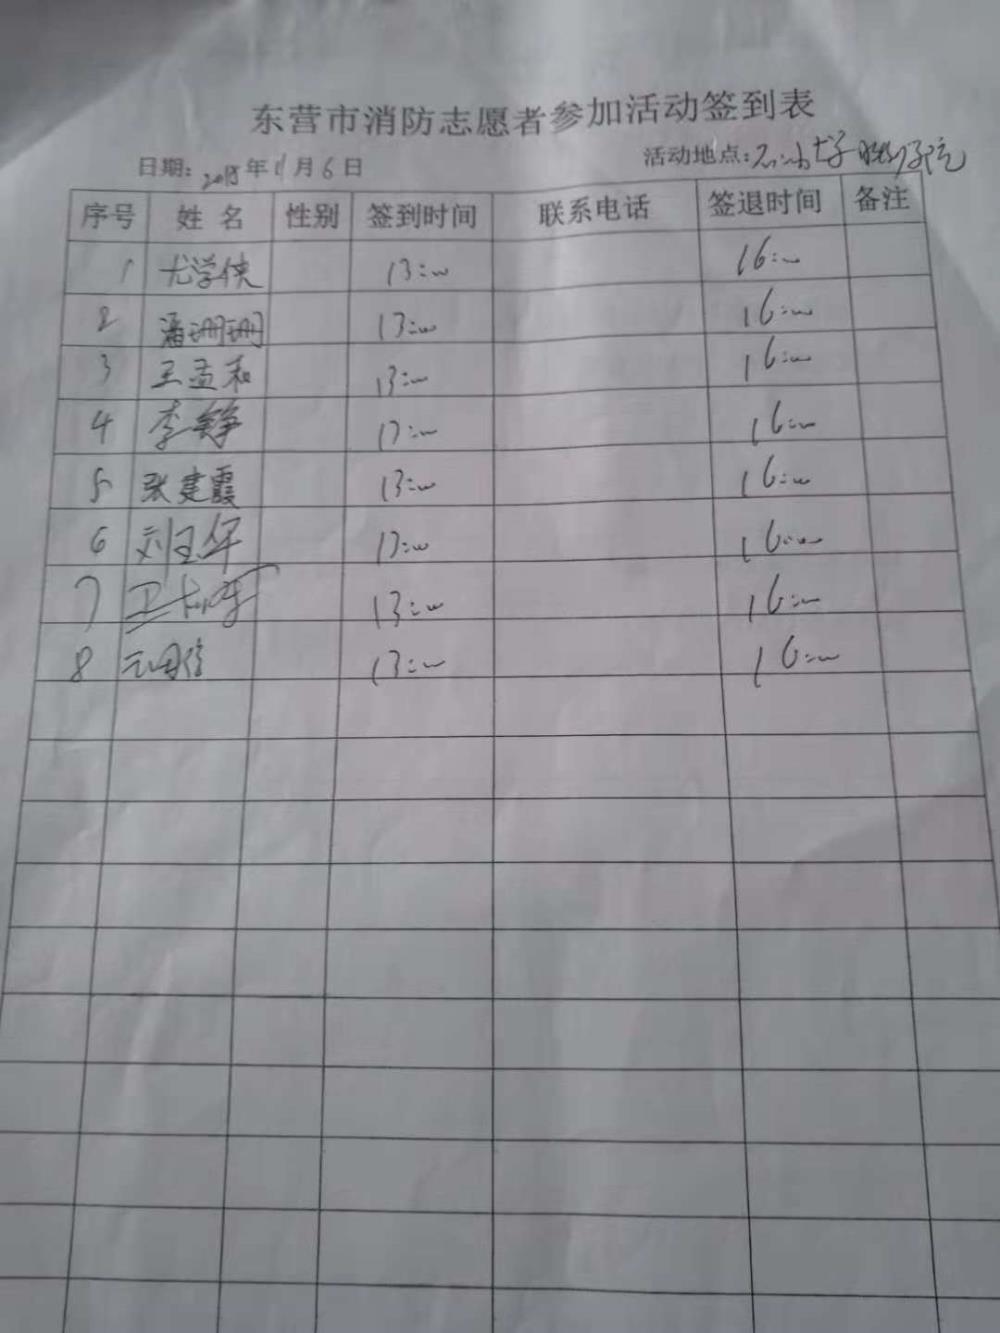 东营市消防志愿者参加活动签到表
日期: 2018年11月6日 活动地点: 石油大学胜利学院
序号 姓名 性别 签到时间 联系电话 签退时间 备注
1 尤学侠 13:00 16:00
2 潘珊珊 13:00 16:00
3 王孟和 13:00 16:00
4 李铮 13:00 16:00
5 张建霞 13:00 16:00
6 刘玉华 13:00 16:00
7 13:00 16:00
8 13:00 16:00